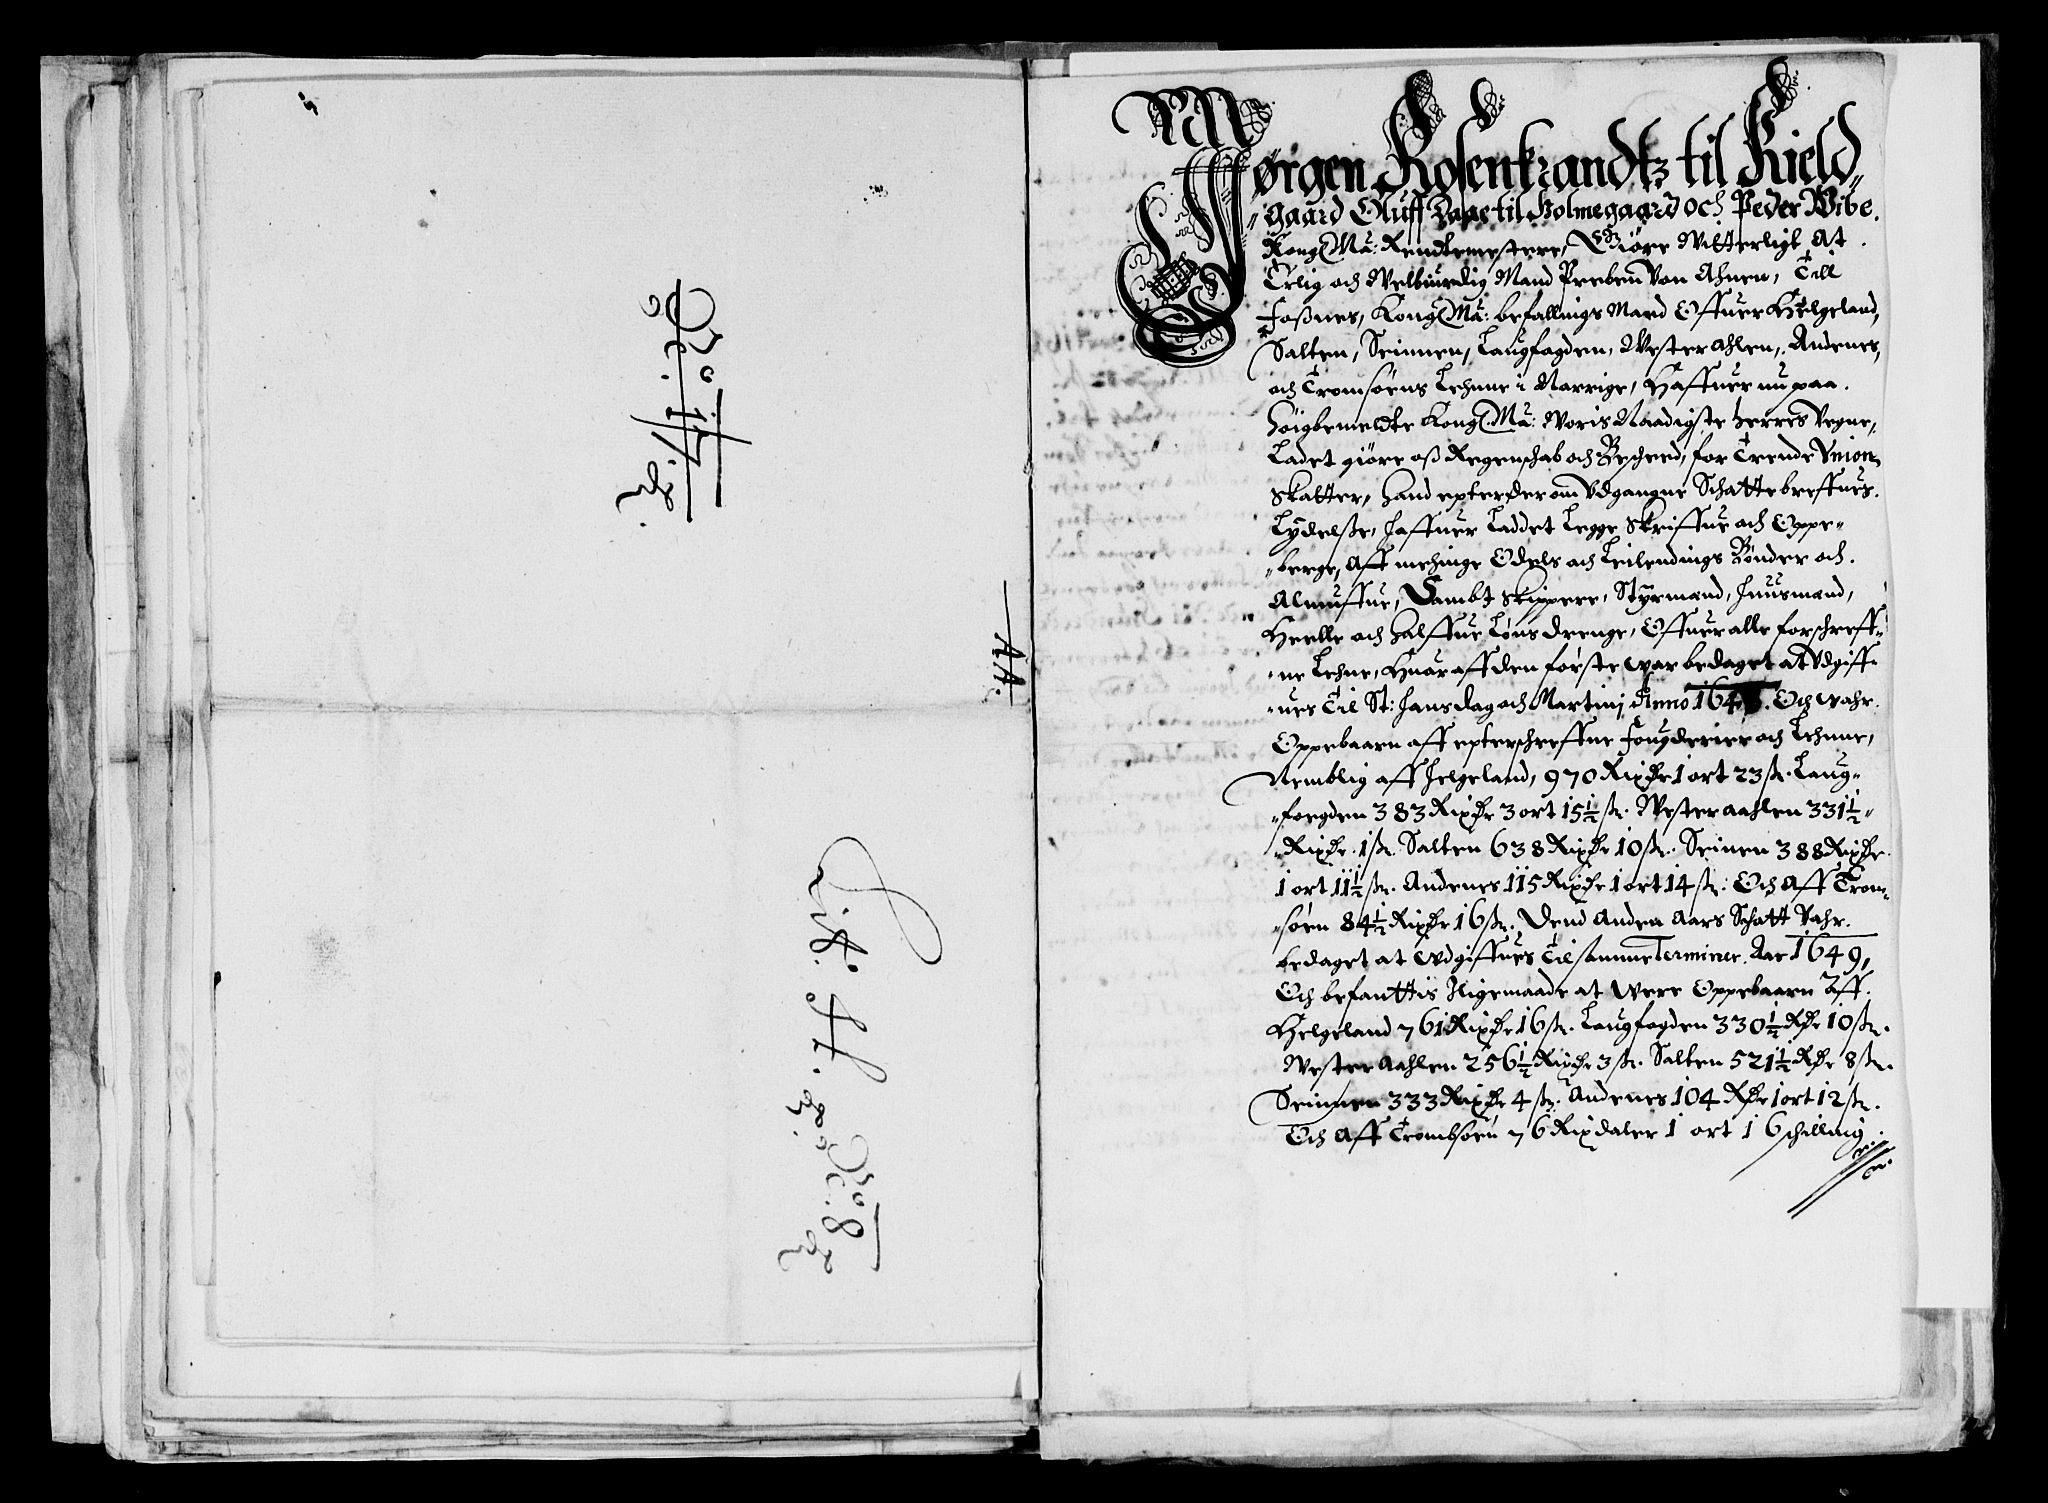 No 17.
Lit. H. No. 8
AA.
Jørgen Rosenkrandtz til Kield„
„gaard Oluff Daae til Holmegaard och Peder Wibe.
Kong: Ma: Rendtemestere, Giøre Witterligt At
Erlig och Welbiurdig Mand Preben Von Ahnen, Till
Foßnes, Kong: Ma: befallings Mand Offuer Helgeland,
Salten, Seinnen, Laugfogden, Wester ahlen, Andenes,
och Tromsøens Lehnne i Norrige, Haffuer nu paa.
Høigbemeldte Kong: Ma: Woris Naadigste Herres Vegne,
Ladet giøre oß Regenschab och Bescheed, for Trende Vnion
Skatter, Hand epter der om Vdgangne Schattebreffues.
Lydelße, Haffuer Laddet Legge Skriffue och Oppe„
„berge, Aff menige Odels och Leilendings Bønder och.
Almuffue, Sambt Skippere, Styrmend, Huusmænd,
Heelle och Halffue Løns drenge, Offuer alle forschreff„
„ne Lehne, Huoraff den første war bedaget at Vdgiff„
„ues Til St: Hans dag och Martinj Anno 164. Och wahr.
Oppebaarn aff epterschreffne Fougderier och Lehnne,
Nemblig aff Helgeland, 970 Rixdr 1 ort 23 ß. Laug„
„foegden 383 Rixdr 3 ort 15½ ß. Wester aahlen 331½„
„Rixdr. 1 ß. Salten 638 Rixdr 10 ß. Seinen 388 Rixdr
1 ort 11½ ß. Andenes 115 Rixdr 1 ort 14 ß. Och Aff Trom„
„søen 84½ Rixdr 16 ß. Dend Anden Aars Schatt Vahr.
bedaget at wdgiffues Til samme Terminer Aar 1649,
Och befanttis Iligemaade at were Oppebaarn Aff.
Helgeland 761 Rixdr 16 ß. Laugfogden 330½ Rdr 10 ß.
Wester Aahlen 256½ Rixdr 3 ß. Salten 521½ Rdr 8 ß.
Seinnen 333 Rixdr 4 ß. Andenes 104 Rdr 1 ort 12 ß.
Och Aff Trombsøen 76 Rixdaler 1 ort 16 schilling